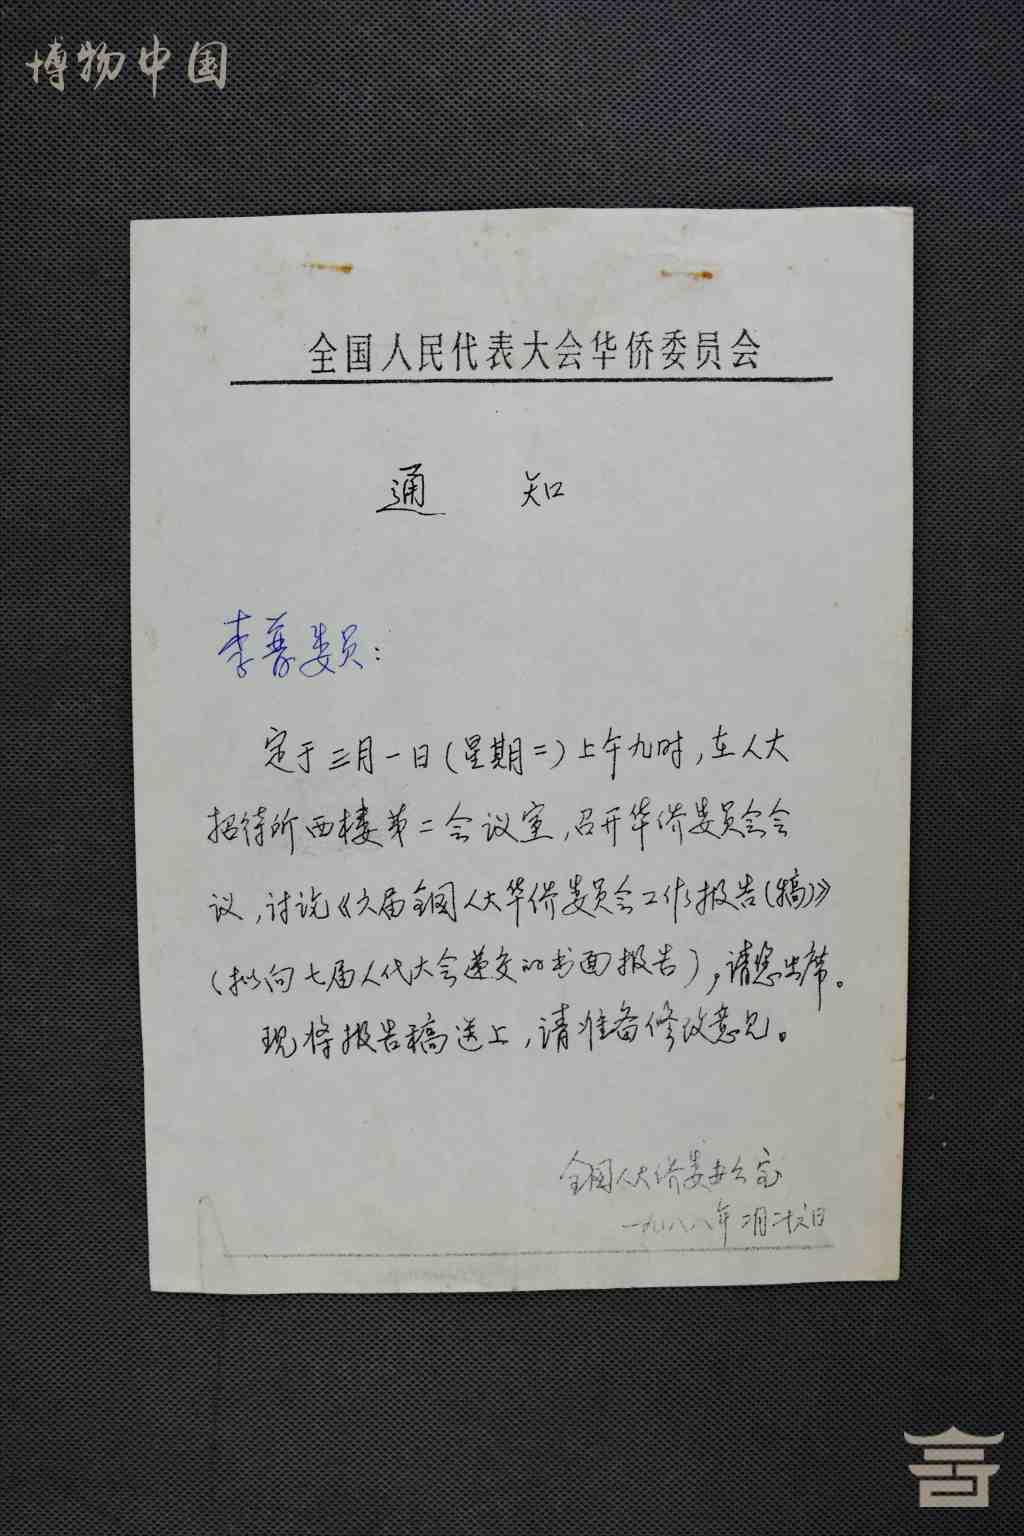 博物中国
全国人民代表大会华侨委员会
通 知
李普委员：
定于三月一日（星期二）上午九时，在人大
招待所西楼第二会议室，召开华侨委员会会
议，讨论《六届全国人大华侨委员会工作报告（稿）》
（拟向七届人代大会递交的书面报告），请您出席。
现将报告稿送上，请准备修改意见。
全国人大侨委办公室
一九八八年二月二十六日